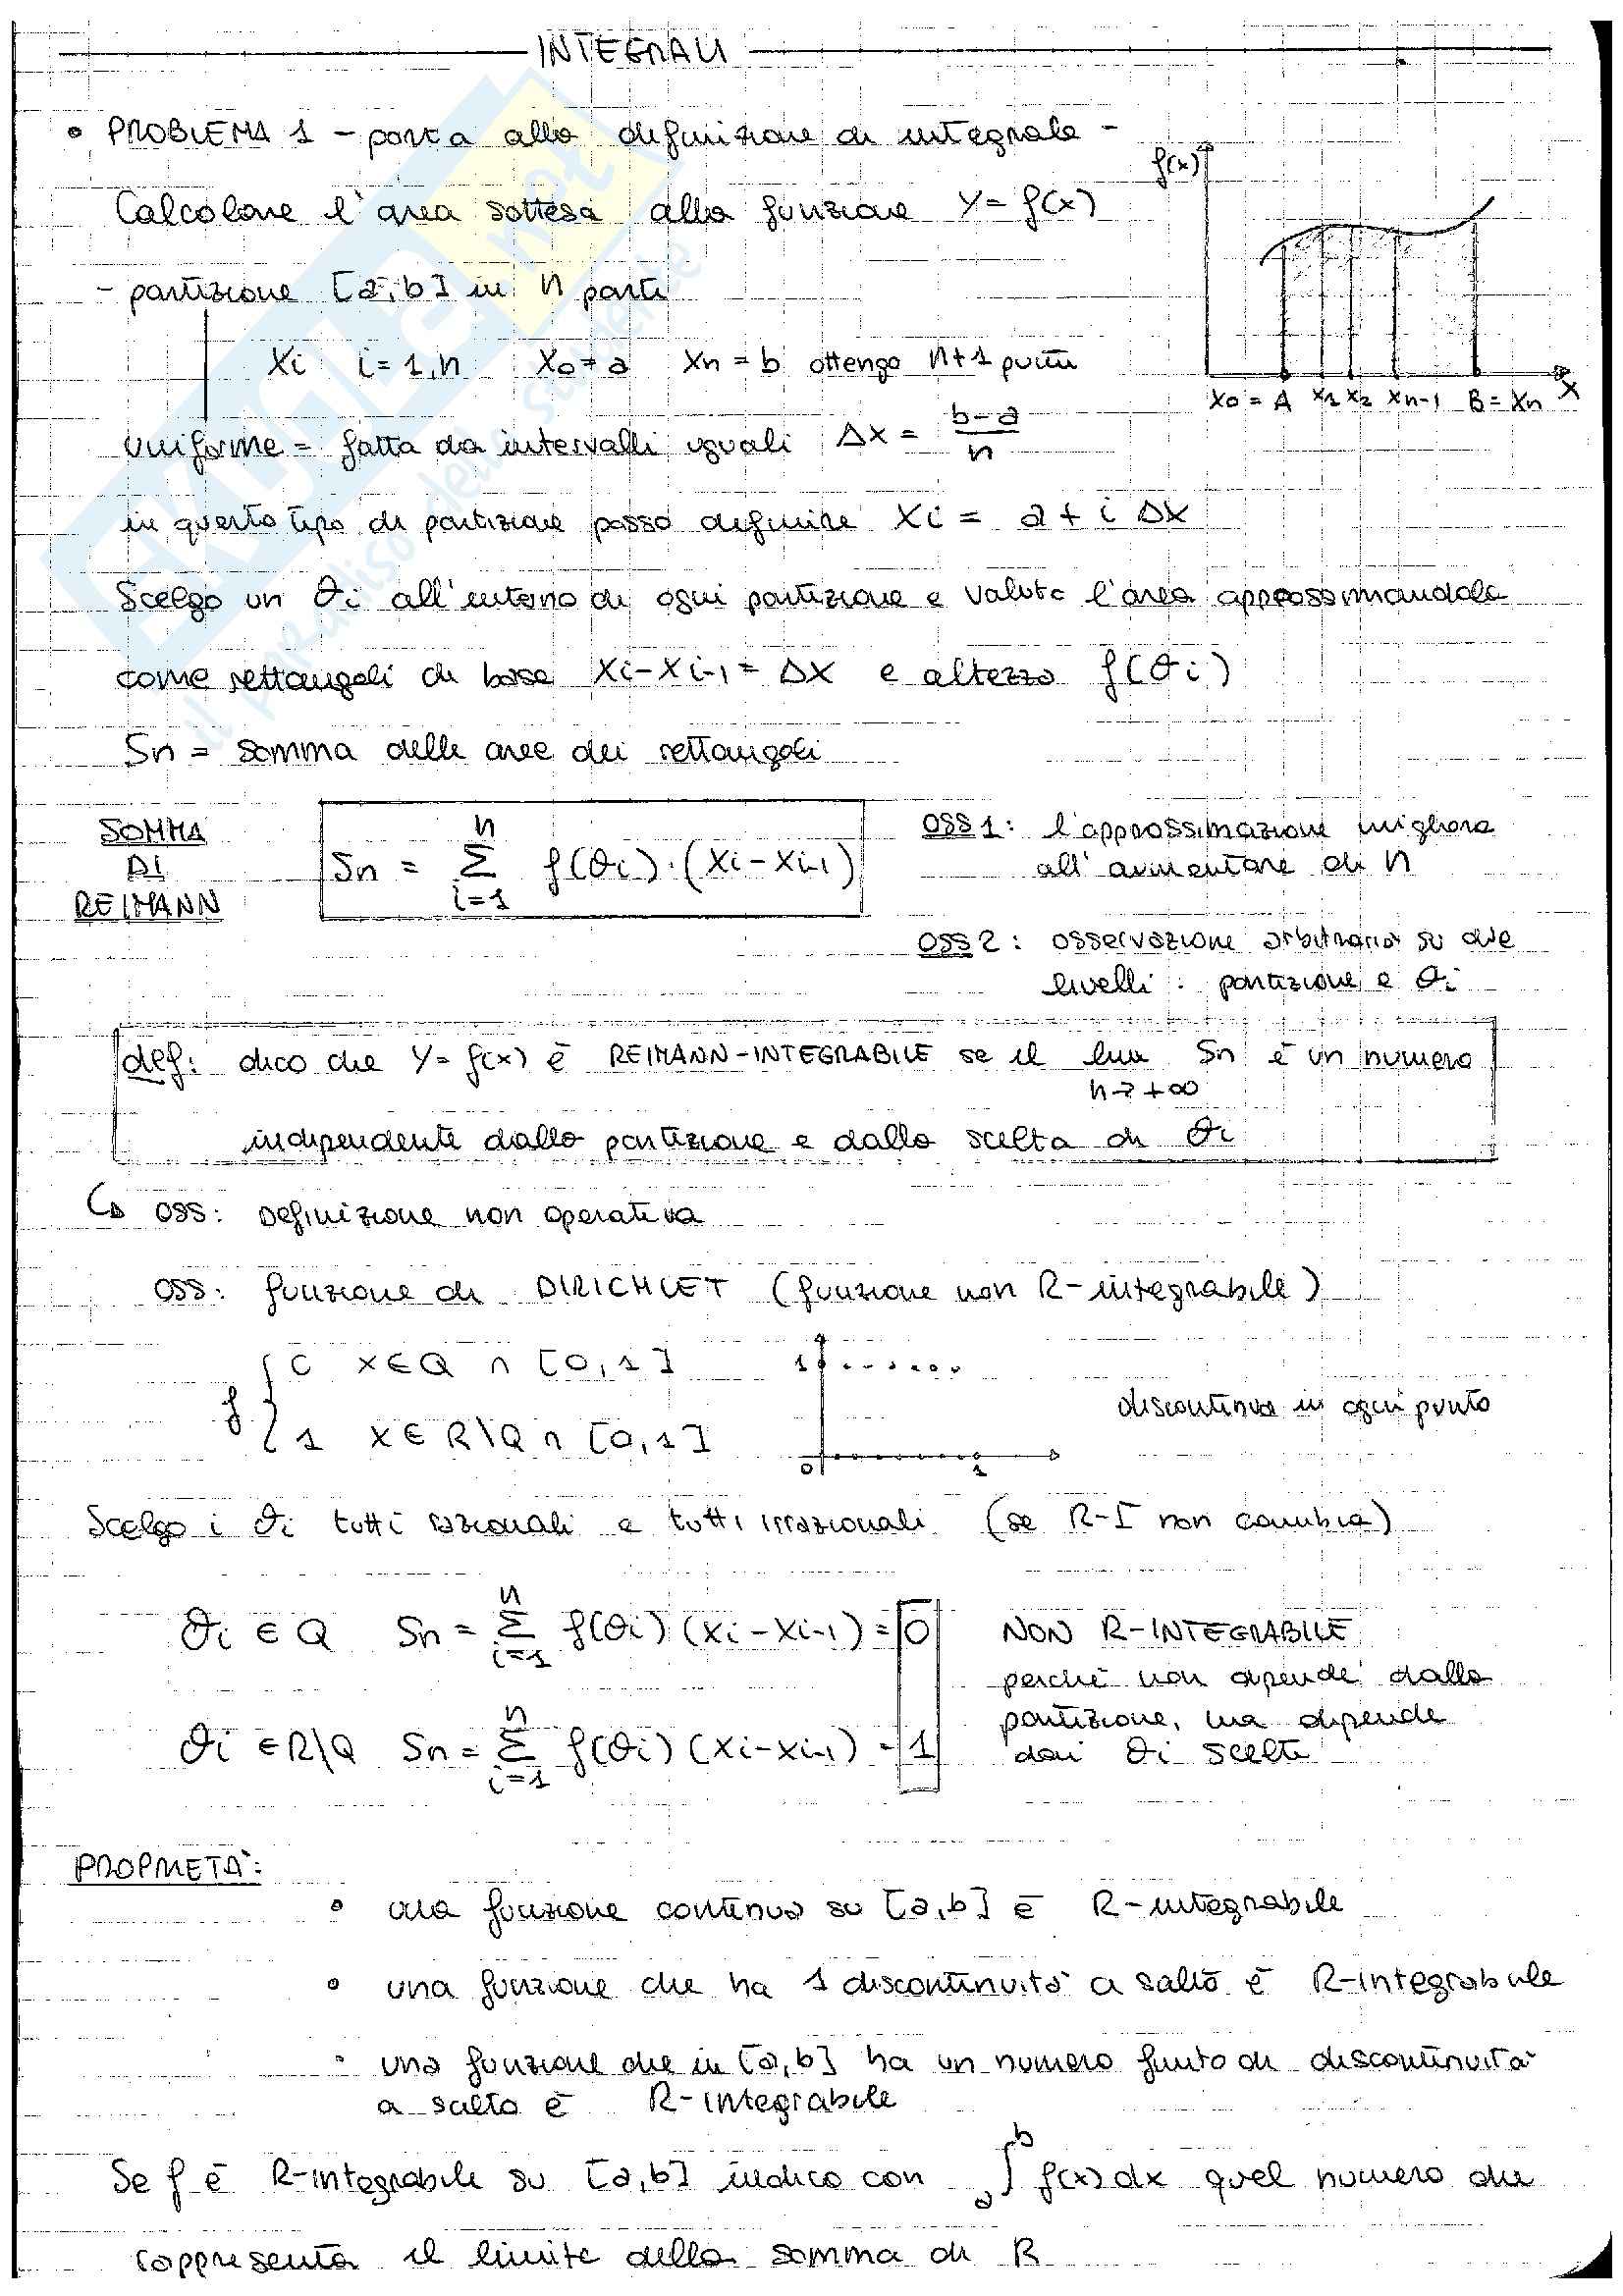 INTEGRALI
• PROBLEMA 1 - porta alla definizione di integrale -
Calcolare l'area sottesa alla funzione y = f(x)
- partizione [a,b] in n parti
xi i=1,n x0=a xn=b ottengo n+1 punti
f(x)
x0 = A x1 x2 xn-1 B = xn x
uniforme = fatta da intervalli uguali Δx = (b-a)/n
in questo tipo di partizione posso definire xi = a + i Δx
Scelgo un ϑi all'interno di ogni partizione e valuto l'area approssimandola
come rettangoli di base xi-xi-1 = Δx e altezza f(ϑi)
Sn = somma delle aree dei rettangoli
SOMMA
DI
REIMANN
Sn = Σ_{i=1}^{n} f(ϑi)·(xi - xi-1)
OSS 1: l'approssimazione migliora
all'aumentare di n
OSS 2: osservazione arbitraria su due
livelli: partizione e ϑi
def: dico che y = f(x) è REIMANN-INTEGRABILE se il lim Sn è un numero
n→+∞
indipendente dalla partizione e dalla scelta di ϑi
↳ OSS: Definizione non operativa
OSS: funzione di DIRICHLET (funzione non R-integrabile)
f { 0 x∈Q ∩ [0,1]
1 x∈R\Q ∩ [0,1]
1
0 1
discontinua in ogni punto
Scelgo i ϑi tutti razionali e tutti irrazionali (se R-I non cambia)
ϑi ∈ Q Sn = Σ_{i=1}^{n} f(ϑi)(xi-xi-1) = 0
ϑi ∈ R\Q Sn = Σ_{i=1}^{n} f(ϑi)(xi-xi-1) = 1
NON R-INTEGRABILE
perché non dipende dalla
partizione, ma dipende
dai ϑi scelti
PROPRIETA':
• una funzione continua su [a,b] è R-integrabile
• una funzione che ha 1 discontinuità a salto è R-integrabile
• una funzione che in [a,b] ha un numero finito di discontinuità
a salto è R-integrabile
Se f è R-integrabile su [a,b] indico con ∫_a^b f(x)dx quel numero che
rappresenta il limite della somma di R